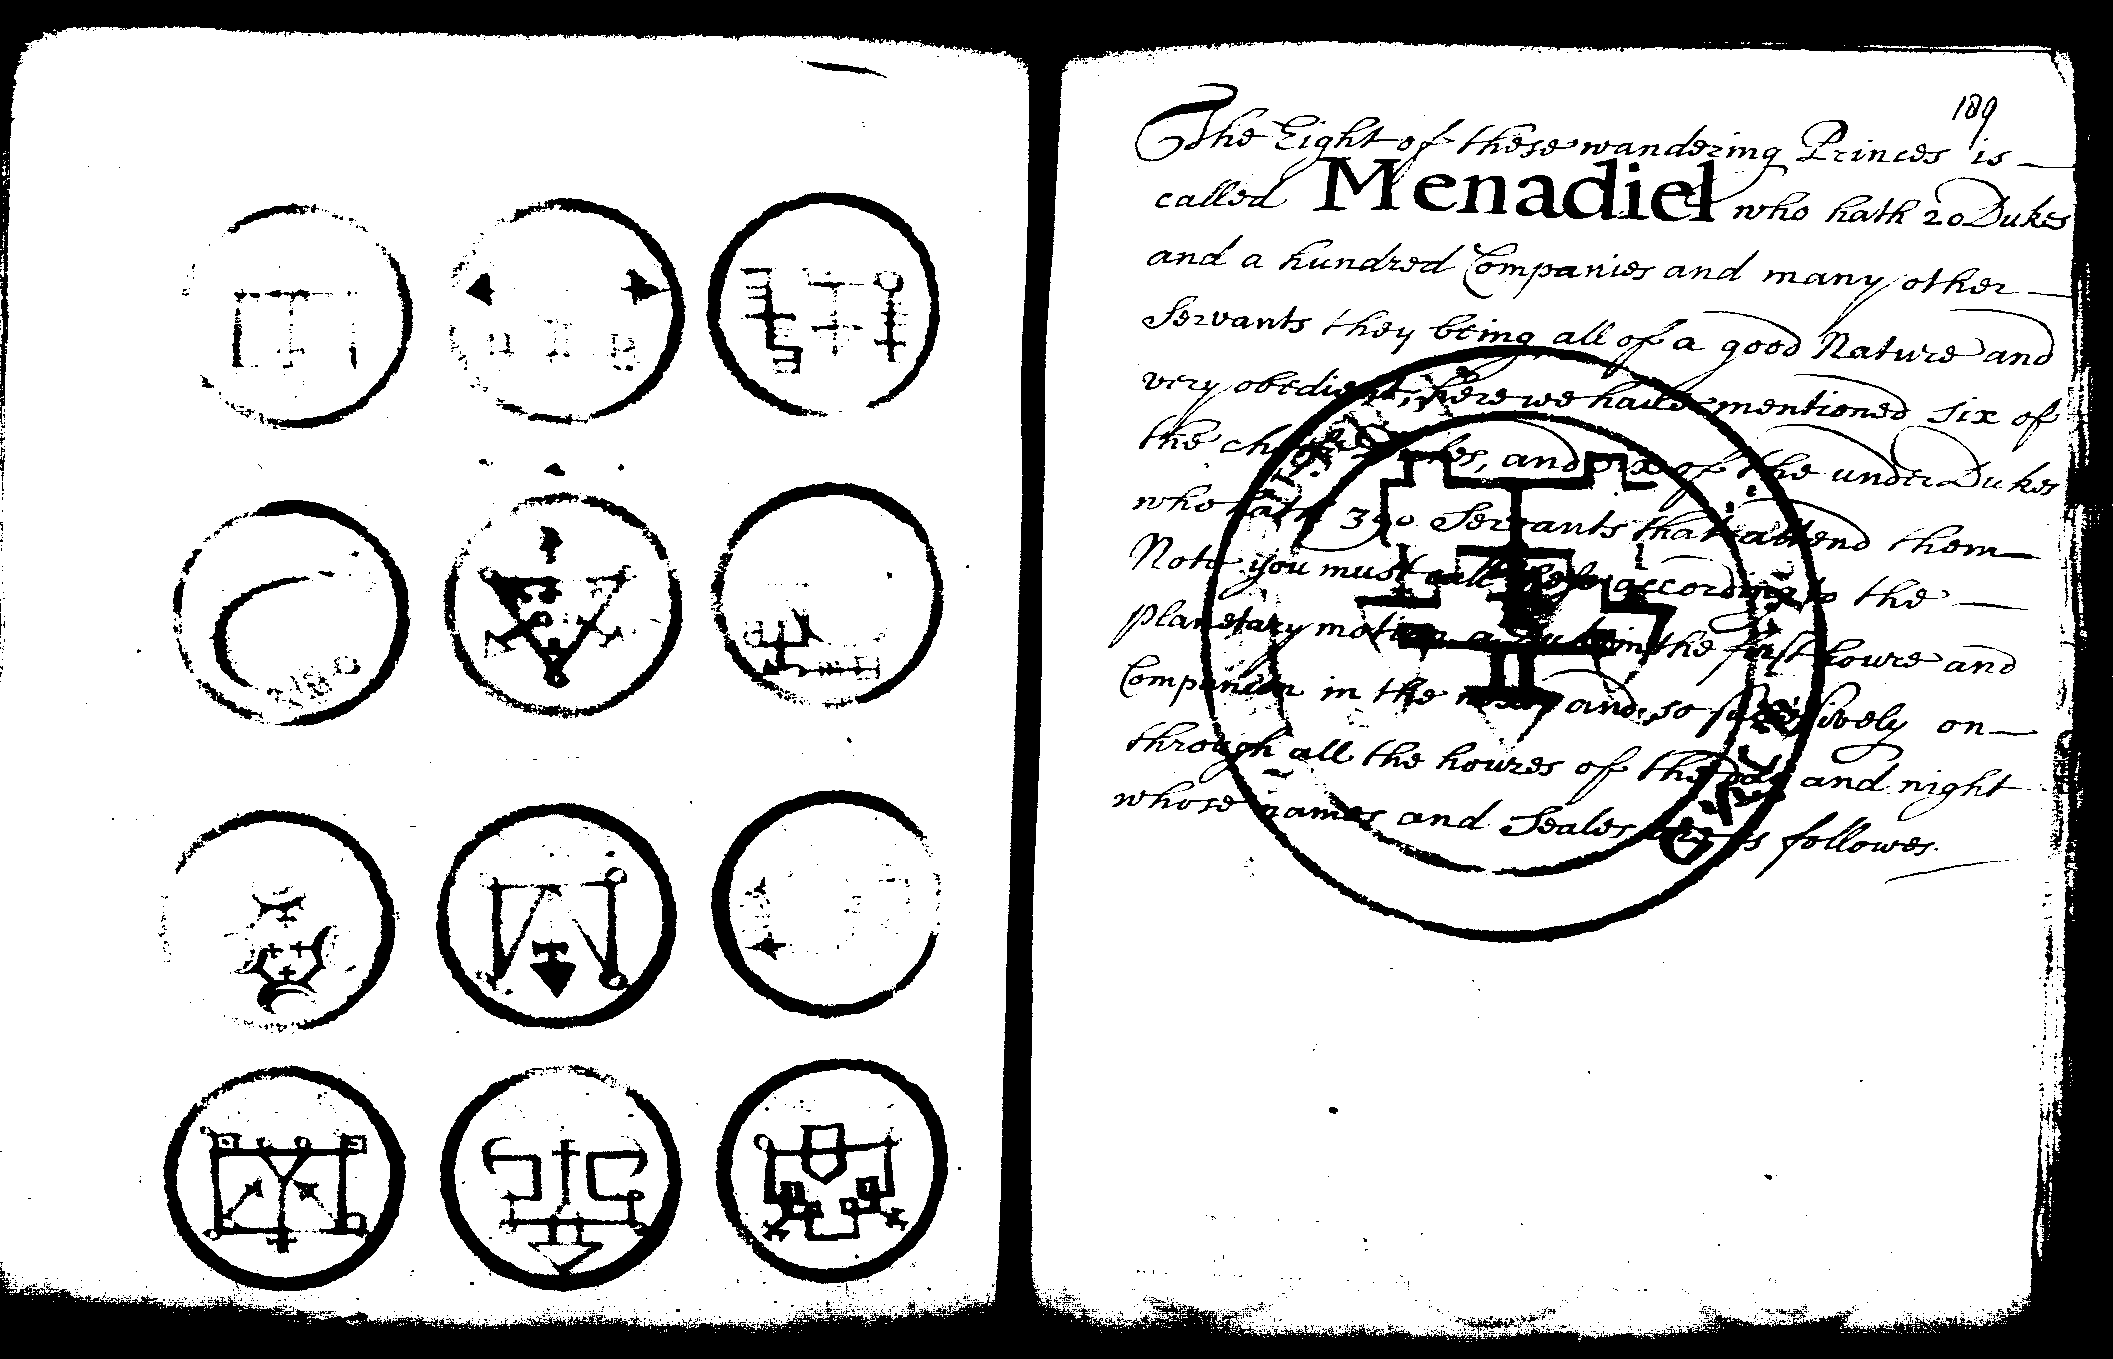 189
The Eight of these wandering Princes is
called Menadiel who hath 20 Dukes
and a hundred Companies and many other
Servants they being all of a good Nature and
very obedient, here we have mentioned six of
the chiefe Dukes, and six of the under Dukes
who hath 390 Servants that attend them
Note you must call these according to the
planetary motion, a Duke in the first houre and
Companion in the next, and so successively on
through all the houres of the day and night
whose names and Seales are as followes.